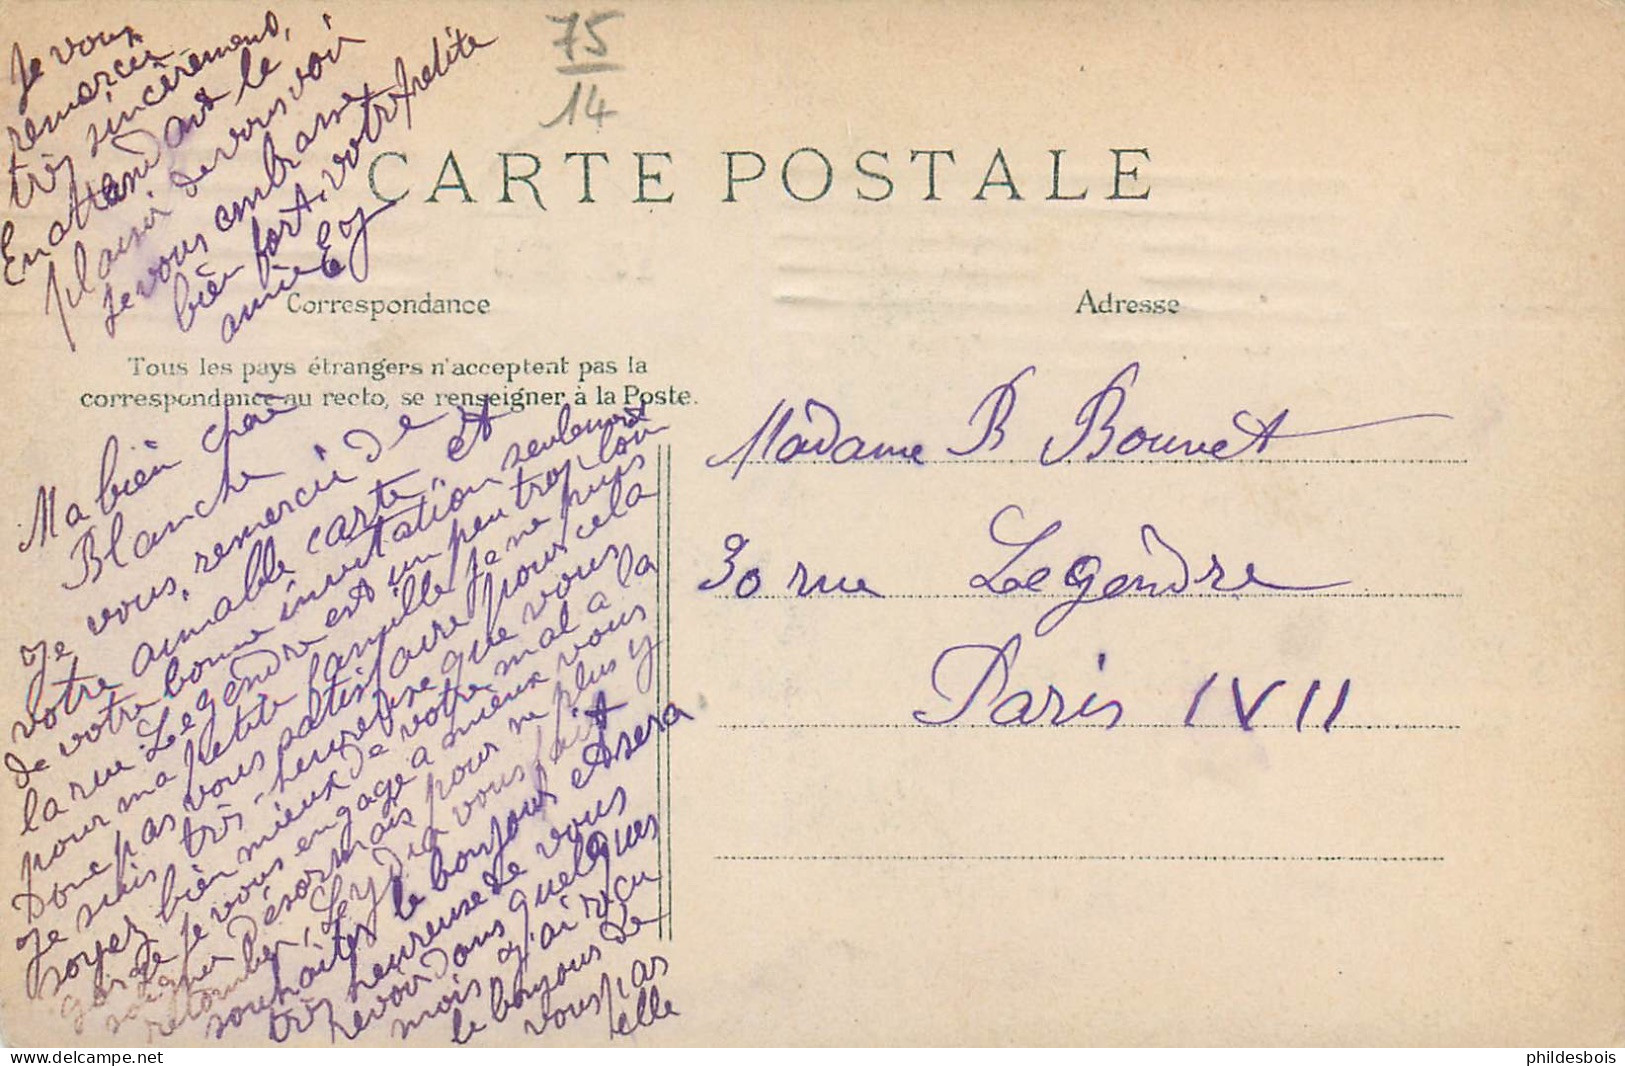 75
14
CARTE POSTALE
Correspondance
Adresse
Tous les pays étrangers n'acceptent pas la
correspondance au recto, se renseigner à la Poste.
Ma bièn chère
Blanche
Je vous, remercie de
votre aimable carte, et
de votre bonne invitation seulement
la rue Legendre est un peu trop loin
pour ma petite famille je ne puis
donc pas vous satisfaire pour cela
Je suis très-heureuse que vous
soyez bièn mieux de votre mal a la
gorge je vous engage a mieux vous
soigner désormais pour ne plus y
retomber, Leydia vous fait
souhaiter le bonjour et sera
très heureuse de vous
revoir dans quelques
mois j'ai reçu
le bonjour de
vous pas
elle
Je vous
remercie
très sincèrement,
En attendant le
plaisir de vous voir
je vous embrasse
bièn fort, votre petite
amie
Madame B Bouvet
30 rue Legendre
Paris XVII
phildesbois